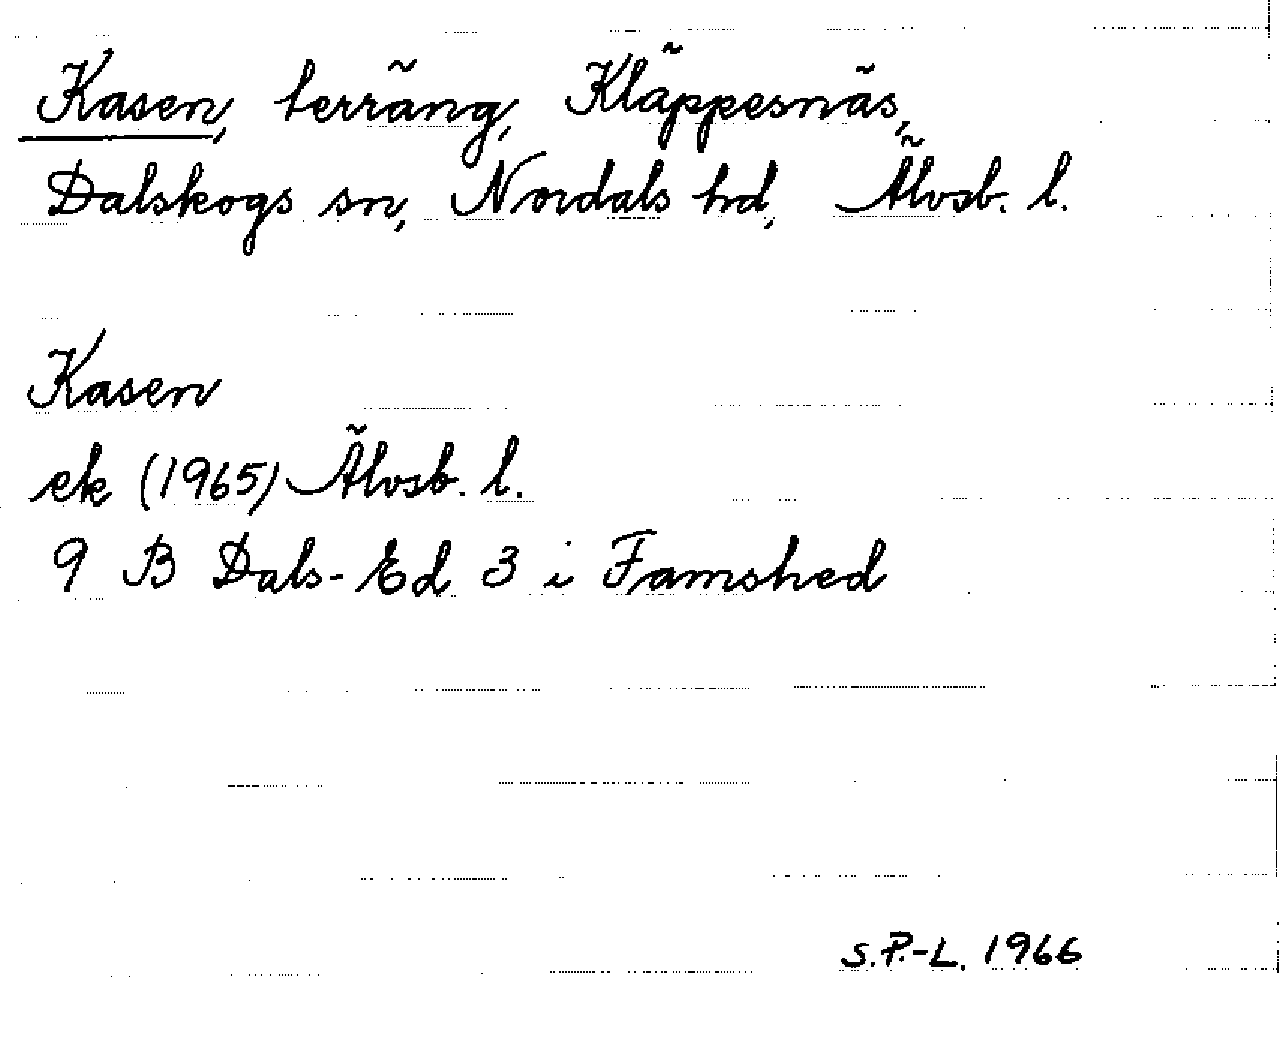 Kasen, terräng, Kläppesnäs,
Dalskogs sn, Nordals hd, Älvsb. l.
Kasen
ek (1965) Älvsb. l.
9 B Dals-Ed 3 i Famshed
S.P.-L. 1966